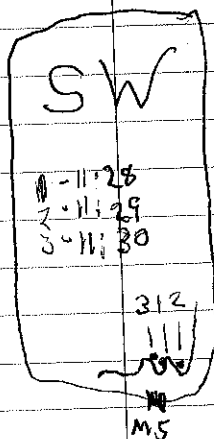 SW
1 - 11:28
2 - 11:29
3 - 11:30
312
M.5